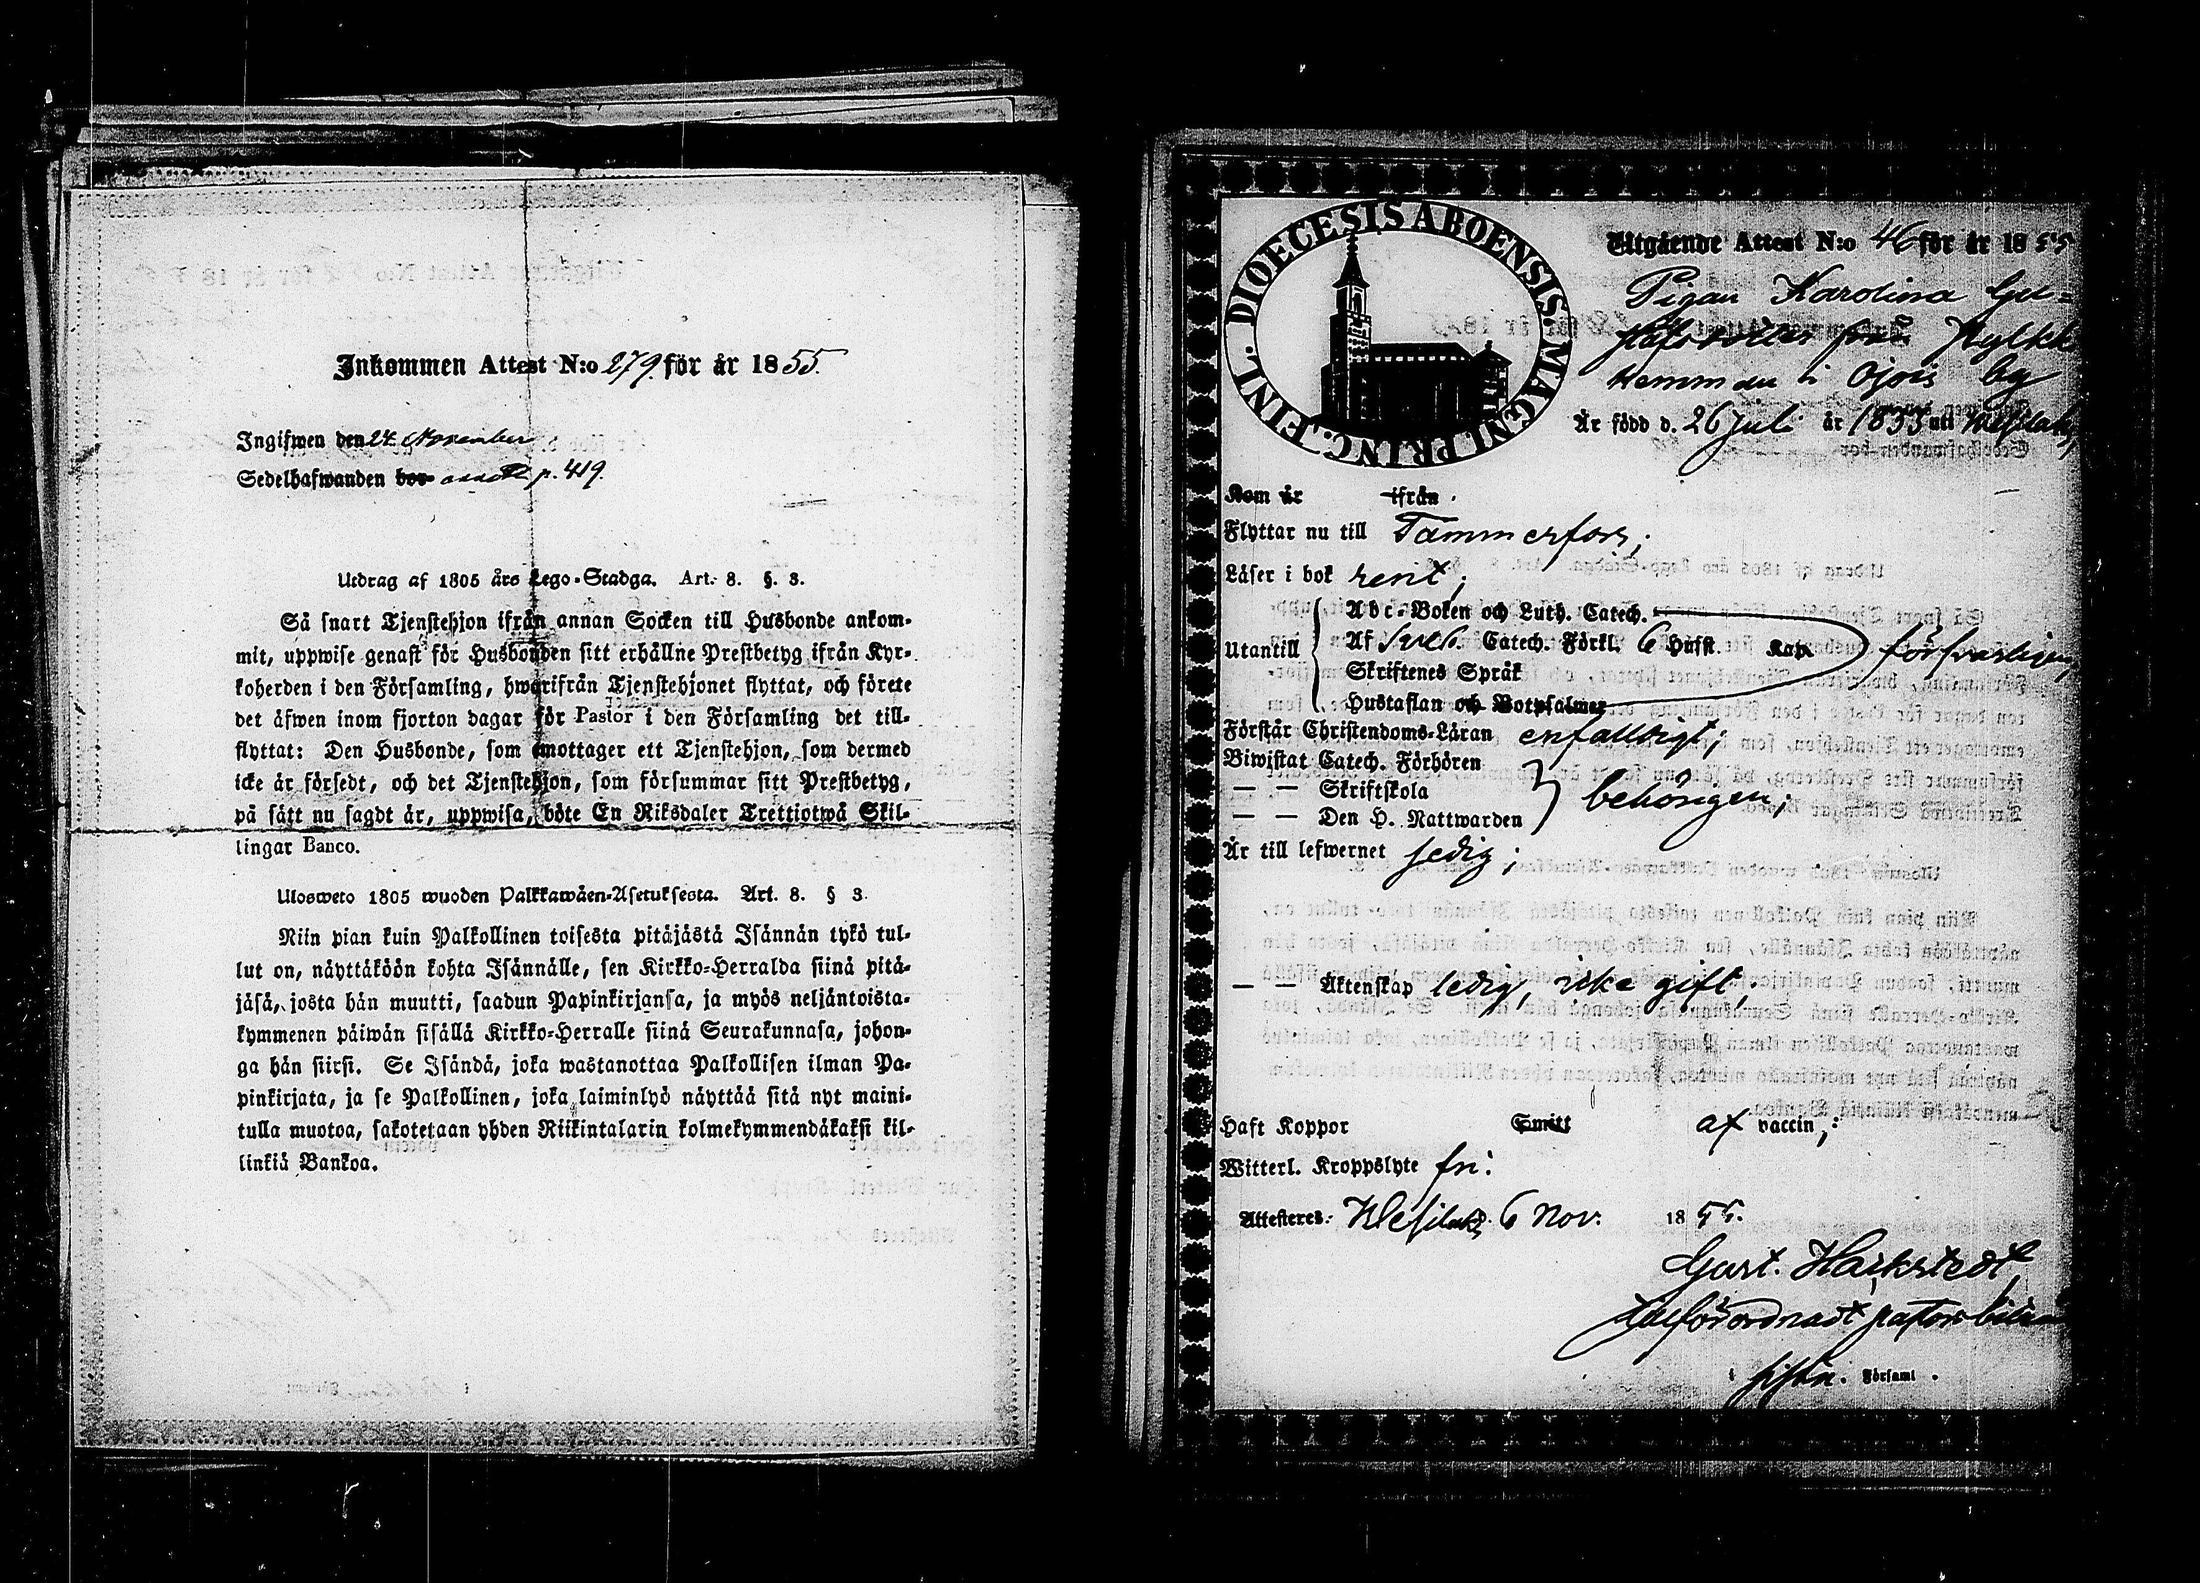 Inkommen Attest N:o 279. för år 1855.
Ingifwen den 24 November
Sedelhafwanden bor annott p. 419.
Utdrag af 1805 års Lego-Stadga. Art. 8. §. 3.
Så snart Tjenstehjon ifrån annan Socken till Husbonde ankom-
mit, uppwise genast för Husbonden sitt erhållne Prestbetyg ifrån Kyr-
koherden i den Församling, hwarifrån Tjenstehjonet flyttat, och förete
det äfwen inom fjorton dagar för Pastor i den Församling det till-
flyttat: Den Husbonde, som emottager ett Tjenstehjon, som dermed
icke är försedt, och det Tjenstehjon, som försummar sitt Prestbetyg,
på sätt nu sagdt är, uppwisa, böte En Riksdaler Trettiotwå Skil-
lingar Banco.
Ulosweto 1805 wuoden Palkkawäen-Asetuksesta. Art. 8. § 3.
Niin pian kuin Palkollinen toisesta pitäjästä Isännän tykö tul-
lut on, näyttäköön kohta Isännälle, sen Kirkko-Herralda siinä pitä-
jäsä, josta hän muutti, saadun Papinkirjansa, ja myös neljäntoista-
kymmenen päiwän sisällä Kirkko-Herralle siinä Seurakunnasa, johon-
ga hän siirsi. Se Isändä, joka wastanottaa Palkollisen ilman Pa-
pinkirjata, ja se Palkollinen, joka laiminlyö näyttää sitä nyt maini-
tulla muotoa, sakotetaan yhden Riikintalarin kolmekymmendäkaksi kil-
linkiä Bankoa.
DIOECESIS ABOENSIS. MAGNI PRINC. FINL.
Utgående Attest N:o 46 för år 1855
Pigan Karolina Gu-
stafsdotter från Kylkk
hemman i Ojois by
Är född d. 26 Juli år 1833 uti Wesilaks,
Kom år ifrån
Flyttar nu till Tammerfors;
Läser i bok rent;
Abc-Boken och Luth. Catech.
Utantill Af Sveb. Catech. Förkl. 6 Hufst. Kap. försvarligen,
Skriftenes Språk
Hustaflan och Botpsalmer
Förstår Christendoms-Läran enfalldigt;
Biwistat Catech. Förhören
— — Skriftskola behörigen;
— — Den H. Nattwarden
Är till lefwernet sedig;
— — Äktenskap ledig, icke gift,
Haft Koppor Smitt af vaccin;
Witterl. Kroppslyte fri.
Attesteres. Wesilaks, 6 Nov. 1855.
Gust. Harkstedt,
Tillförordnadt pastors
i Församl.